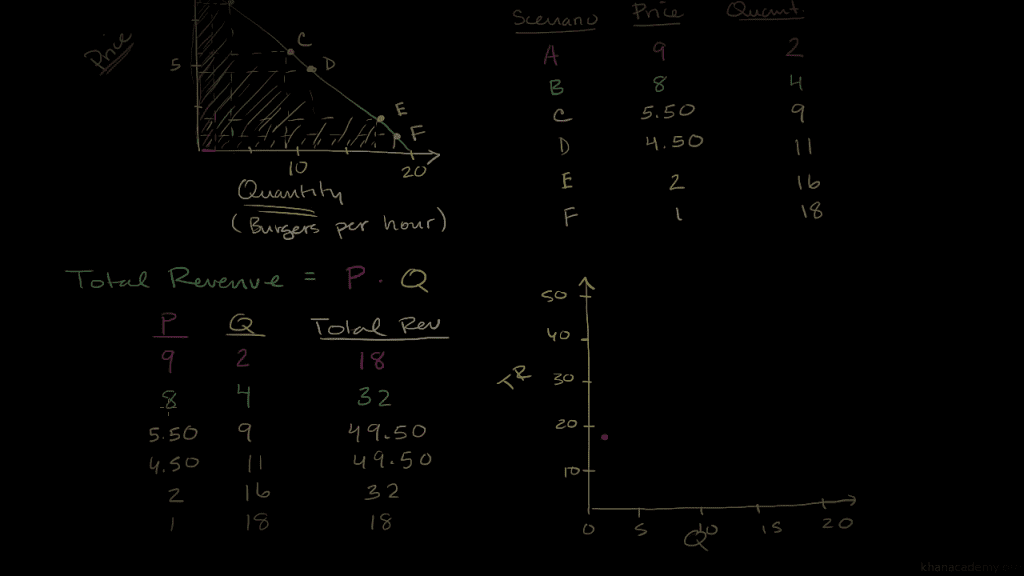 Scenario Price Quant.
A 9 2
B 8 4
C 5.50 9
D 4.50 11
E 2 16
F 1 18
Price
5
C
D
E
F
10 20
Quantity
(Burgers per hour)
Total Revenue = P · Q
P Q Total Rev
9 2 18
8 4 32
5.50 9 49.50
4.50 11 49.50
2 16 32
1 18 18
50
40
TR 30
20
10
0 5 10 15 20
Q
khanacademy